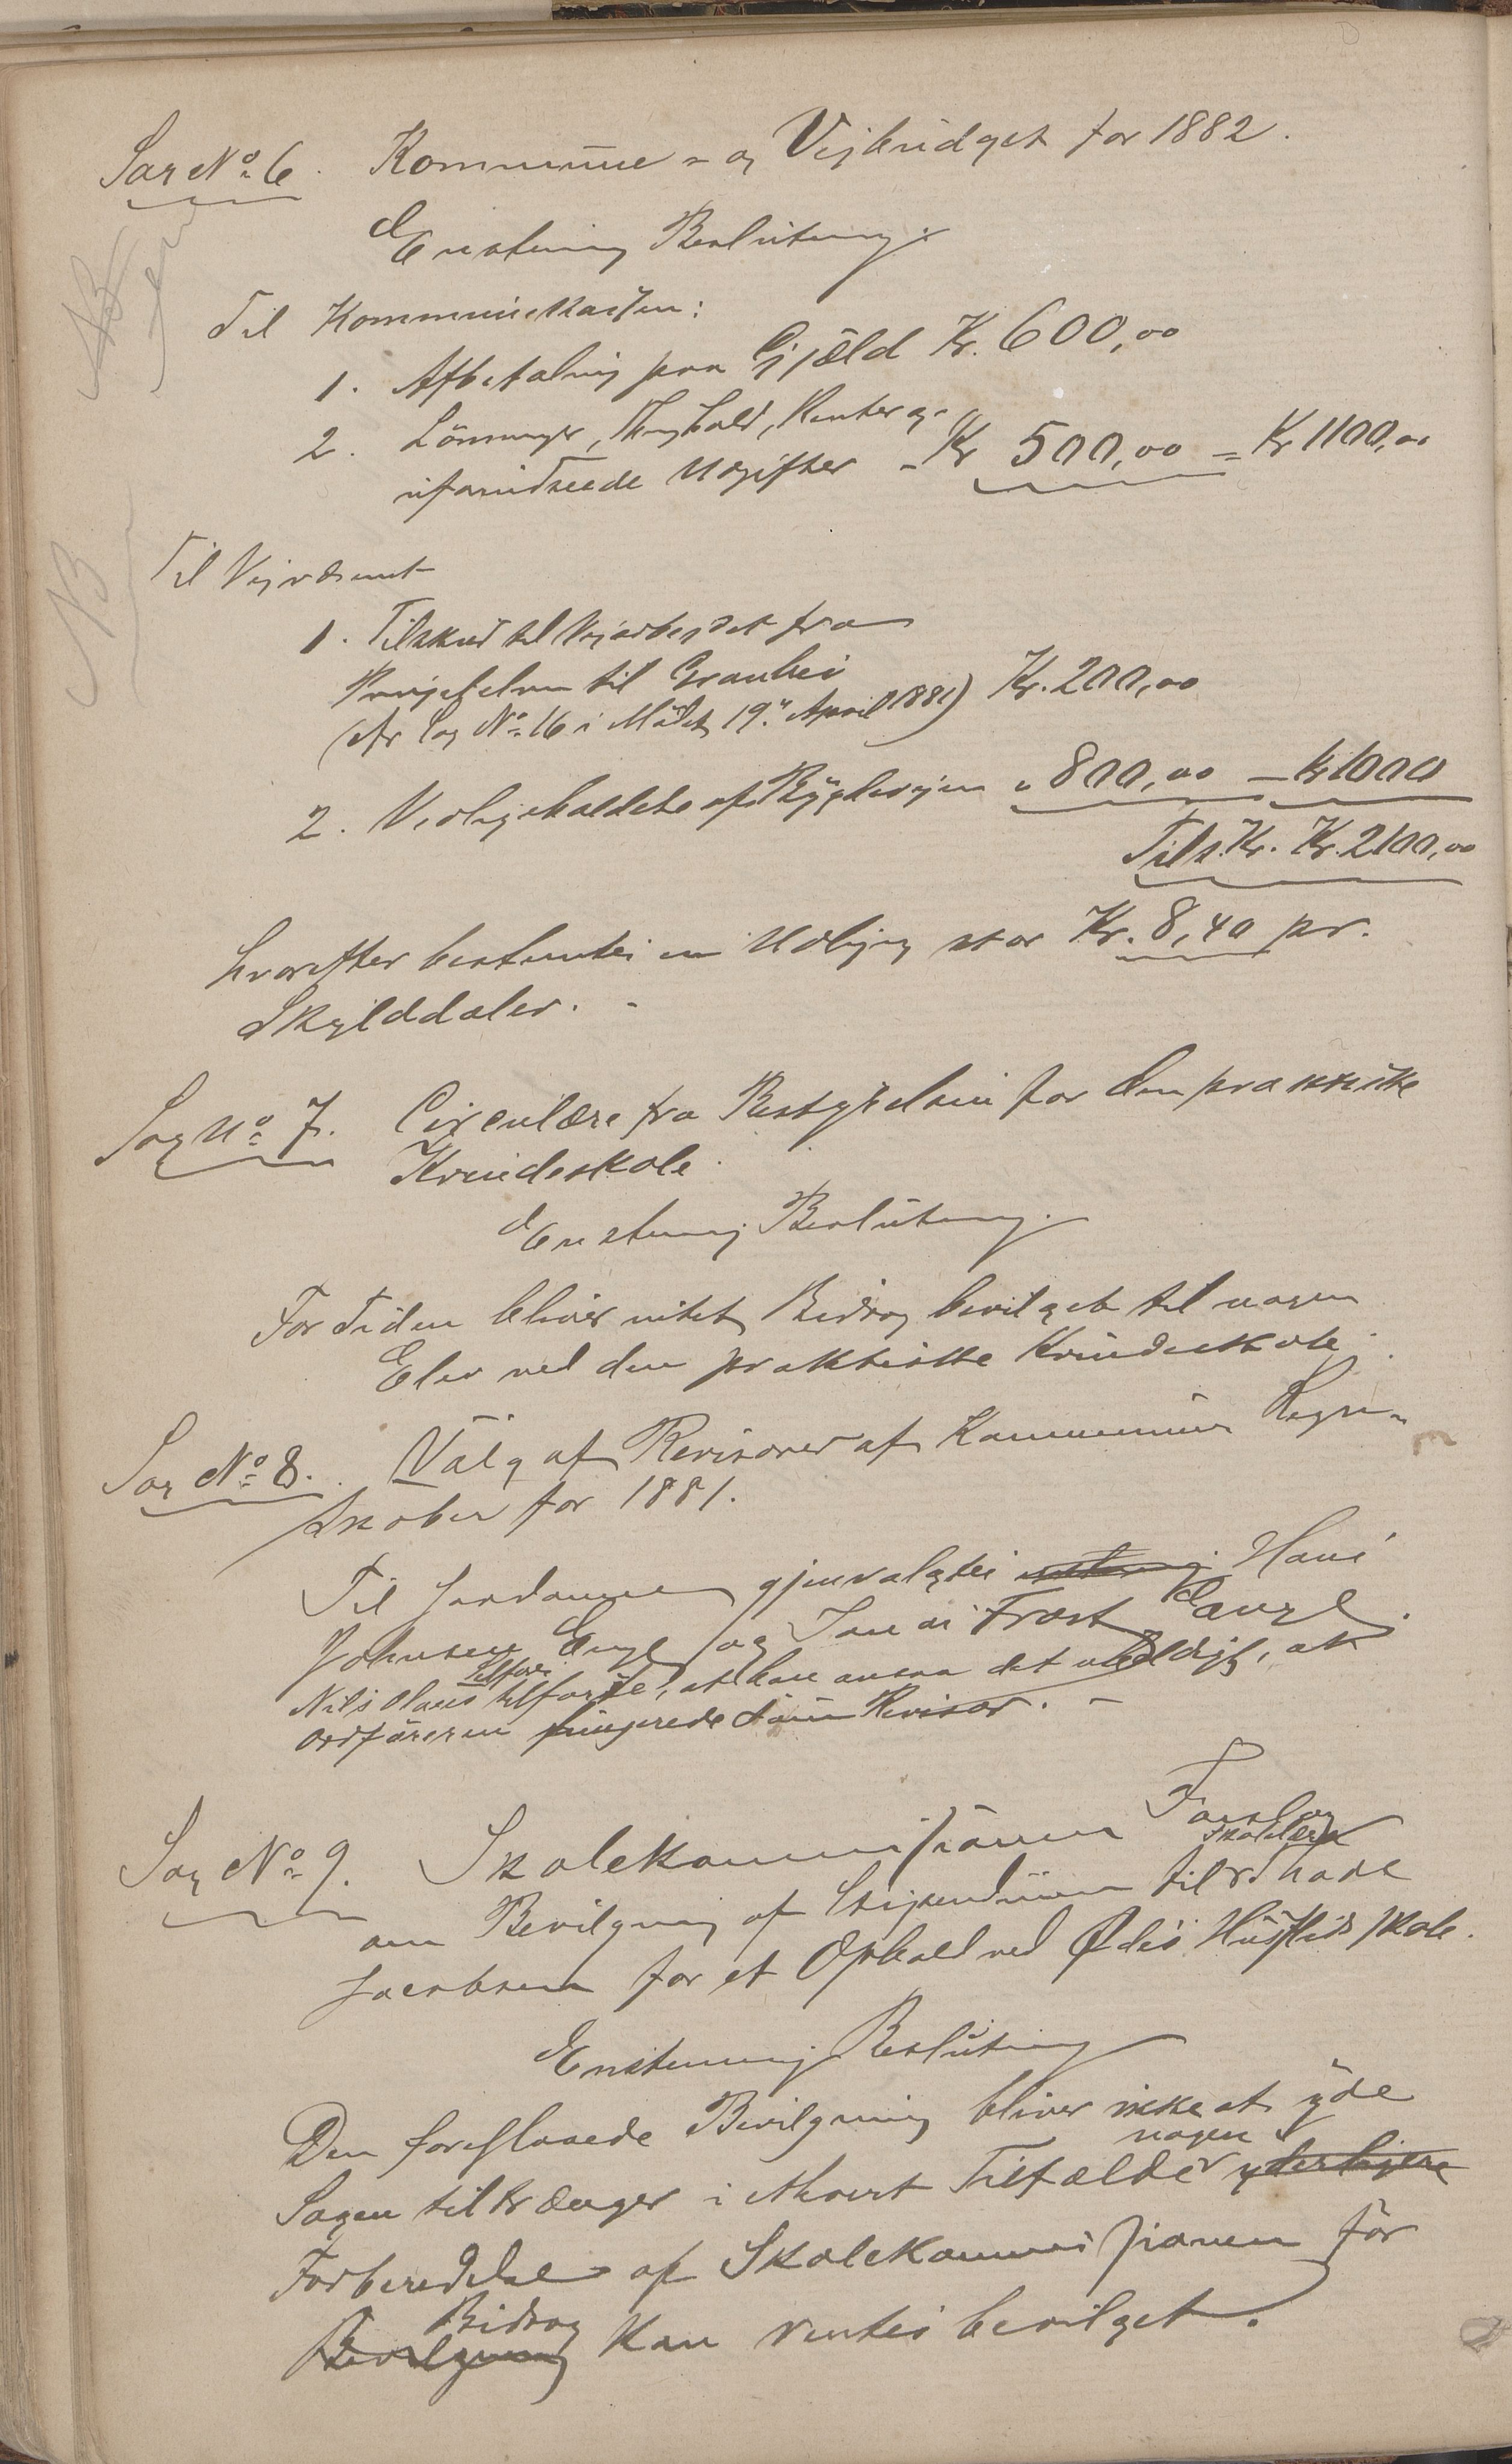 Sag No 6. Kommune- og Vejbudget for 1882.
Enstemig Beslutning:
Til Kommunekassen:
1. Afbetaling paa Gjæld Kr. 600,00
2. Lønninger, Thinghold, Renter og
uforudseede Udgifter - Kr 500,00 = Kr 1100,00
NB
NB
Til Vejvæsenet
1. Tilskud til Vejarbejdet fra
til
(cfr Sag No 16 i Mødet 19. April 1881) Kr. 200,00
2. Vedligeholdelse af Bygdeveien " 800,00 - Kr 1000
Tils. Kr. Kr. 2100,00
hvorefter bestemtes en Udligning stor Kr. 8,40 pr.
Skylddaler. -
Sag No 7. Circulære fra Bestyrelsen for den praktiske
Kvindeskole.
Enstemig Beslutning.
For Tiden bliver intet Bidrag bevilget til nogen
Elev ved den praktiske Kvindeskole.
Sag No 8. Valg af Revisorer af Kommunens Regn-
skaber for 1881.
Til saadanne gjenvalgtes enstemig Hans
Johnsen Enge og Jonas Træst
Nils Olaus tilføiede, at han ansaa det uheldigt, at
Ordføreren fungerede som Revisor. -
Sag No 9. Skolekommissionen Forslag
Skolelærer
om Bevilgning af Stipendium til
Jacobsen for et Ophold ved Huusflids skole.
Enstemmig Beslutning
Den foreslaaede Bevilgning bliver ikke at yde
nogen
Sagen tiltrænger i ethvert Tilfælde yderligere
Forberedelse af Skolekommissionen før
Bidrag
Bevilgning kan ventes bevilget.